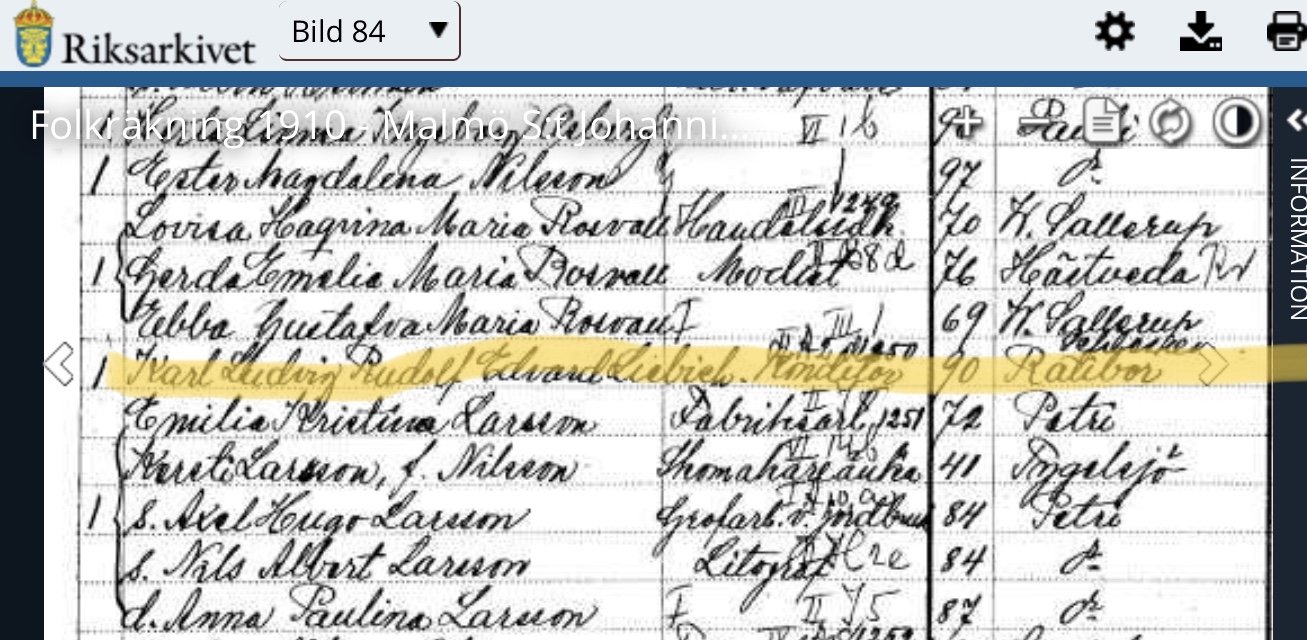 Riksarkivet
Bild 84
Folkräkning 1910 - Malmö S:t Johanni...
VI 1b
1 Ester Magdalena Nilsson 97 d:o
Lovisa Hagrina Maria Rosvall Handelsidk. 1249 70 W. Sallerup
1 Gerda Emelia Maria Rosvall Modist 76 Hästveda
Ebba Gustafva Maria Rosvall F III 1 69 W. Sallerup
1 Karl Ludvig Rudolf Edvard Liebich. Konditor 1250 90 Ratibor
Emilia Kristina Larsson Fabriksarb. 1251 72 Petri
Kersti Larsson, f. Nilsson 41
1 s. Axel Hugo Larsson Grofarb. 84 Petri
s. Nils Albert Larsson Litograf 84 d:o
d. Anna Paulina Larsson F II 87 d:o
INFORMATION